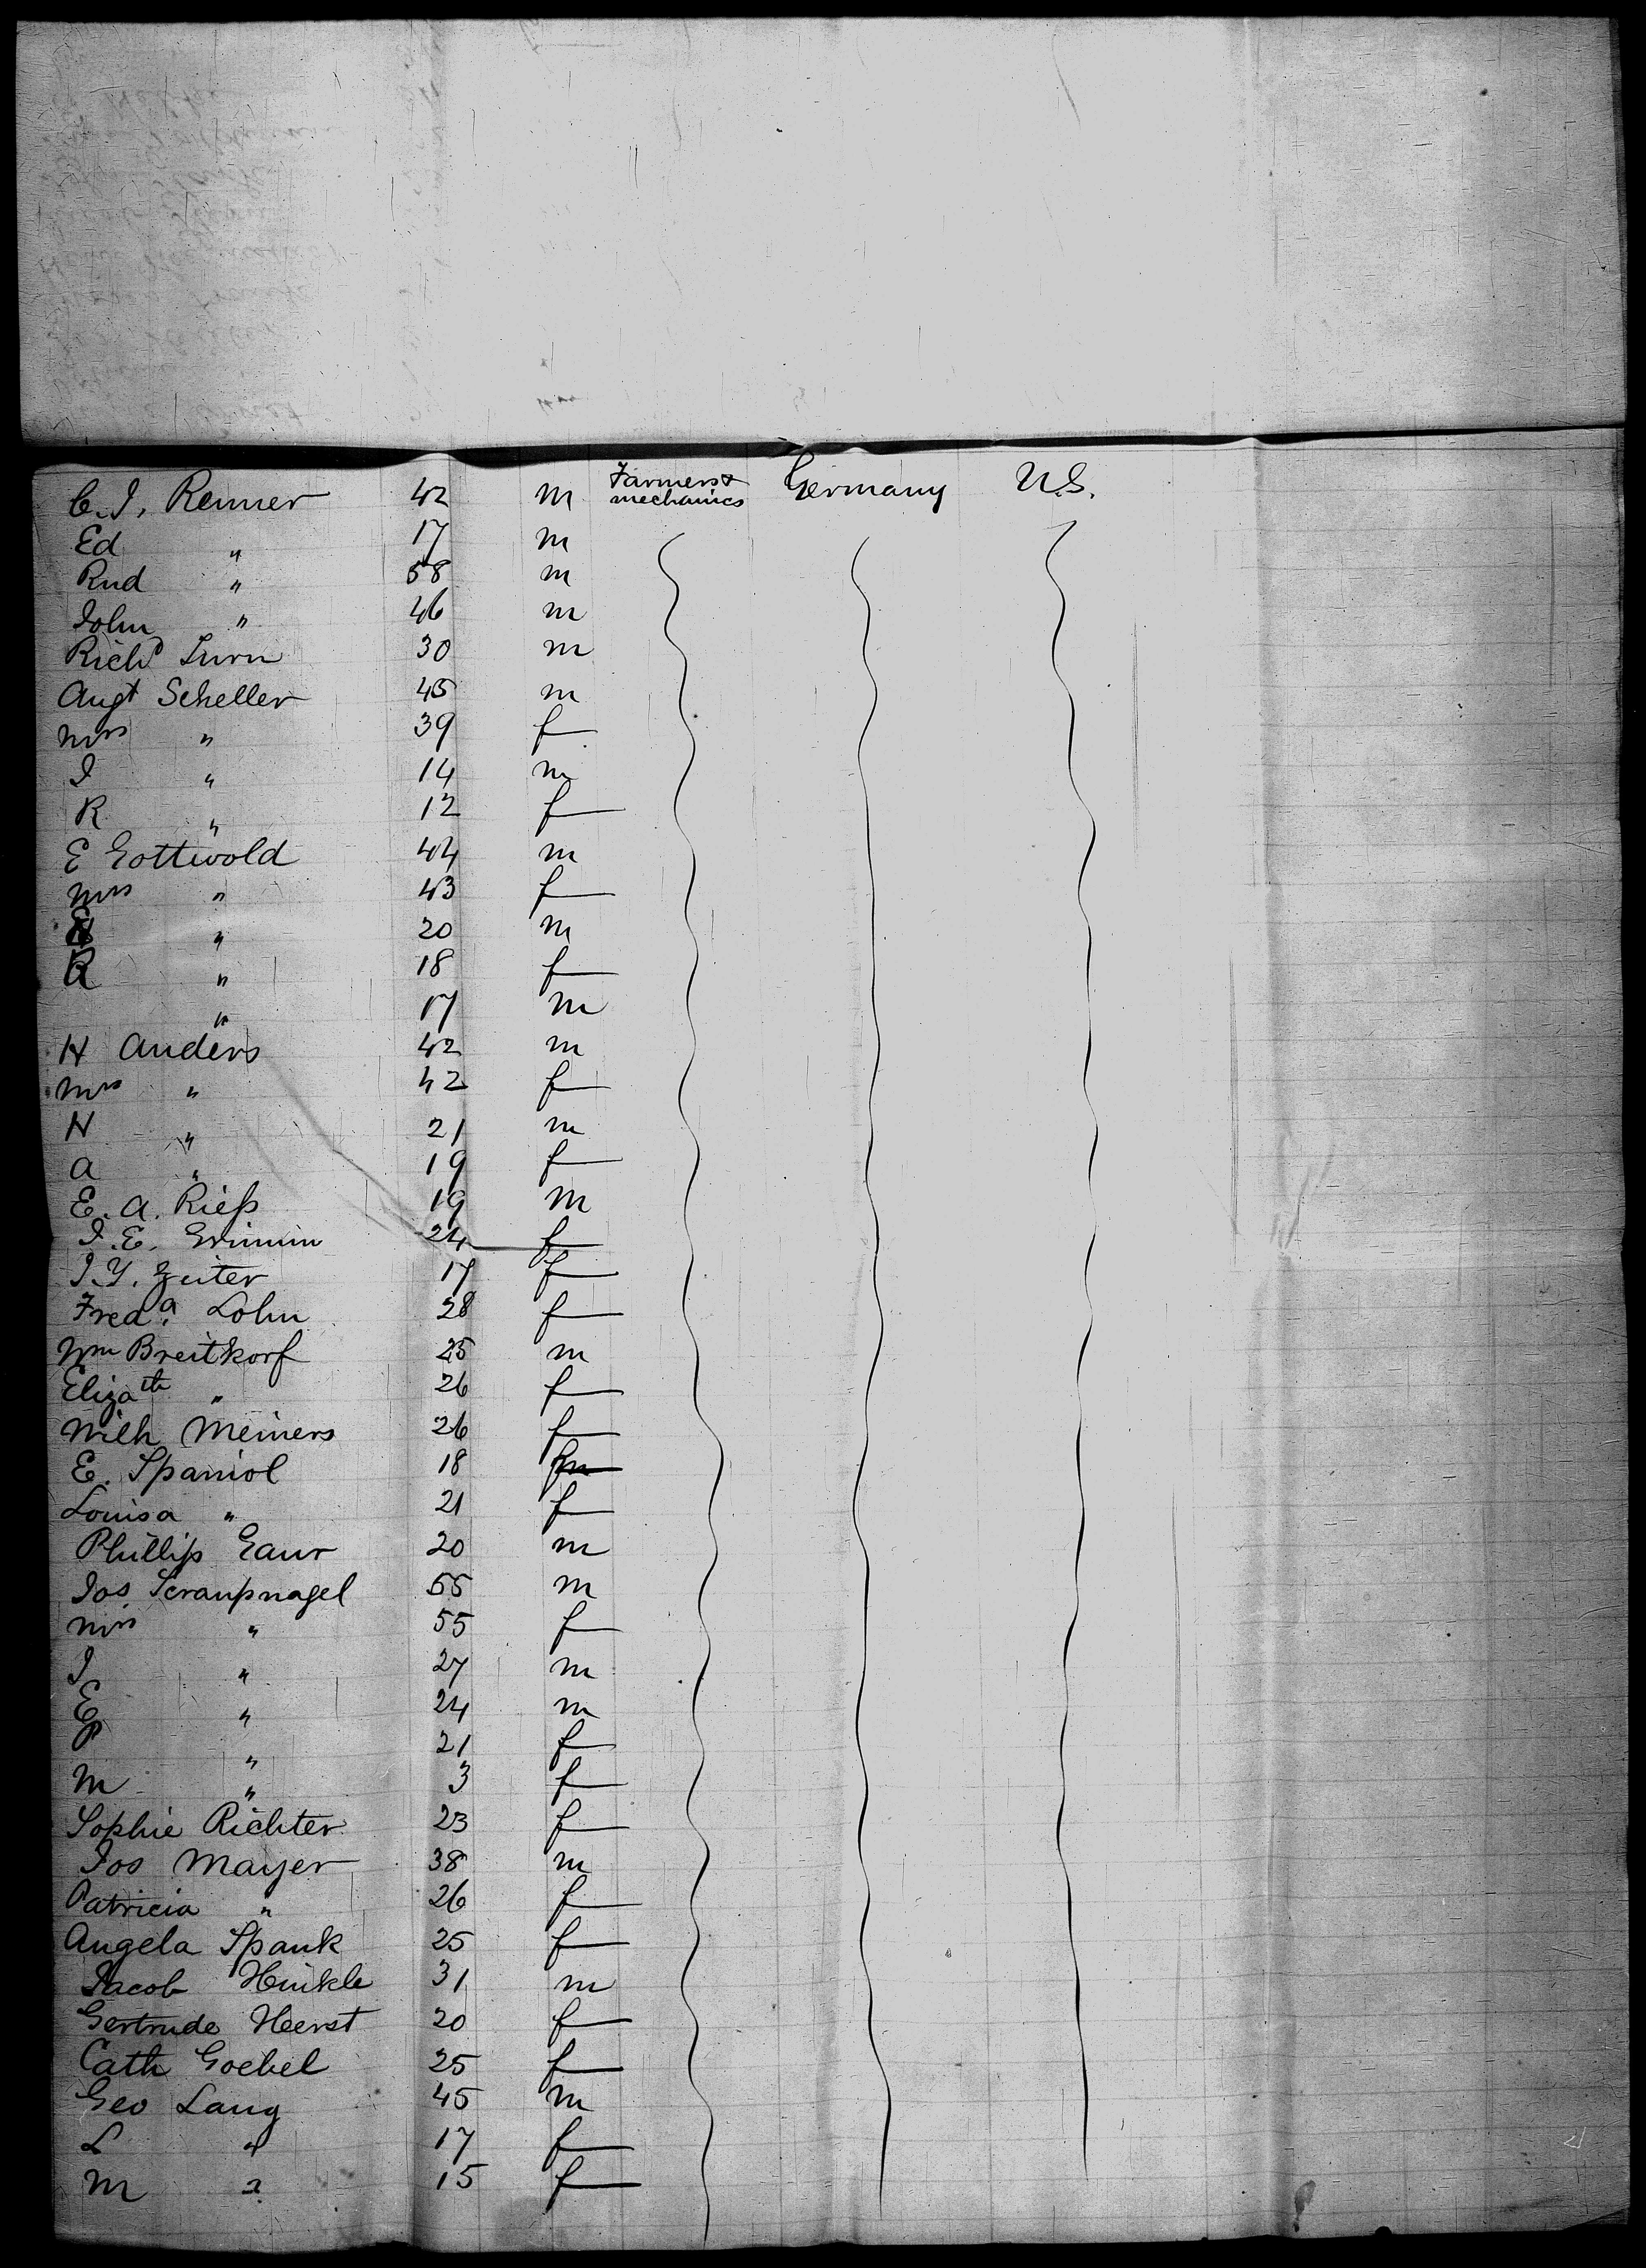 C. J. Renner 42 m Farmers & mechanics Germany U.S.
Ed " 17 m
Rud " 58 m
John " 46 m
Richd Turn 30 m
Augt Scheller 45 m
Mrs " 39 f
J " 14 m
R " 12 f
E Gottwold 44 m
Mrs " 43 f
" 20 m
R " 18 f
" 17 m
H Anders 42 m
Mrs " 42 f
H " 21 m
A " 19 f
E. A. Rieß 19 m
J. E. Grimm 24 f
J. Y. Zeiter 17 f
Freda. Lohn 28 f
Wm Breitkorf 25 m
Elizath " 26 f
Wilh Meiners 26 f
E. Spaniol 18
Louisa " 21 f
Phillip Gaur 20 m
Jos Scraupnagel 55 m
Mrs " 55 f
J " 27 m
E " 24 m
P " 21 f
M " 3 f
Sophie Richter 23 f
Jos Mayer 38 m
Patricia " 26 f
Angela Spank 25 f
Jacob Hinkle 31 m
Gertrude Heerst 20 f
Cath Goebel 25 f
Geo Lang 45 m
L " 17 f
M " 15 f